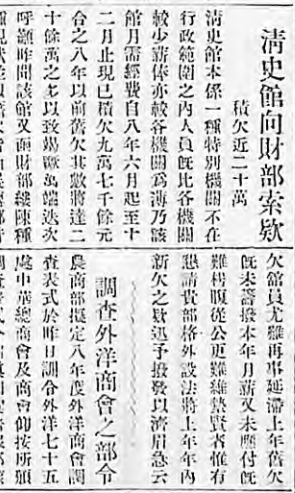 清史館向財部索欵
積欠近二十萬
清史館本係一種特別機關不在
行政範圍之內人員旣比各機關
較少薪俸亦較各機關爲薄乃該
館月需經費自八年六月起至十
二月止現已積欠九萬七千餘元
合之八年以前舊欠其數將達二
十餘萬之多以致竭蹶萬端迭次
呼籲昨聞該館又函財部縷陳種
欠館員尤難再事延滯上年舊欠
旣未籌撥本年月薪又未應付旣
難枵腹從公更難維縶賢者惟有
懇請貴部格外設法將上年年內
新欠之欵迅予撥發以濟眉急云
調查外洋商會之部令
農商部擬定八年度外洋商會調
查表式於昨日訓令外洋七十五
處中華總商會及商會飭按所頒